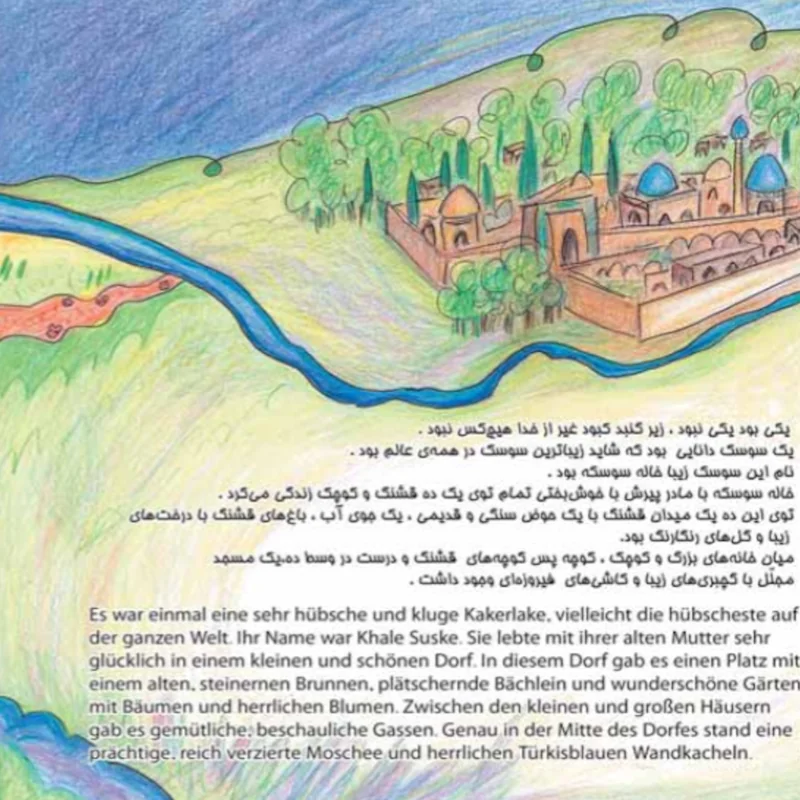 یکی بود یکی نبود ، زیر گنبد کبود غیر از خدا هیچ‌کس نبود .
یک سوسک دانایی بود که شاید زیباترین سوسک در همه‌ی عالم بود .
نام این سوسک زیبا خاله سوسکه بود .
خاله سوسکه با مادر پیرش با خوش‌بختی تمام توی یک ده قشنگ و کوچک زندگی می‌کرد .
توی این ده یک میدان قشنگ با یک حوض سنگی و قدیمی ، یک جوی آب ، باغ‌های قشنگ با درخت‌های
زیبا و گل‌های رنگارنگ بود.
میان خانه‌های بزرگ و کوچک ، کوچه پس کوچه‌های قشنگ و درست در وسط ده،یک مسجد
مجلّل با گچبری‌های زیبا و کاشی‌های فیروزه‌ای وجود داشت .
Es war einmal eine sehr hübsche und kluge Kakerlake, vielleicht die hübscheste auf
der ganzen Welt. Ihr Name war Khale Suske. Sie lebte mit ihrer alten Mutter sehr
glücklich in einem kleinen und schönen Dorf. In diesem Dorf gab es einen Platz mit
einem alten, steinernen Brunnen, plätschernde Bächlein und wunderschöne Gärten
mit Bäumen und herrlichen Blumen. Zwischen den kleinen und großen Häusern
gab es gemütliche, beschauliche Gassen. Genau in der Mitte des Dorfes stand eine
prächtige, reich verzierte Moschee und herrlichen Türkisblauen Wandkacheln.